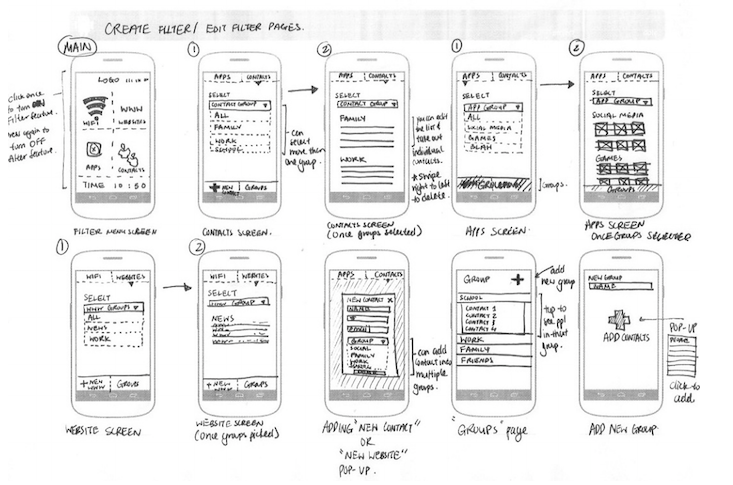 CREATE FILTER/ EDIT FILTER PAGES.
MAIN
click once
to turn ON
Filter feature.
again to
turn OFF
filter feature.
LOGO
WIFI
WWW
WEBSITES
APPS
CONTACTS
TIME 10:50
FILTER MENU SCREEN
1
APPS CONTACTS
SELECT
CONTACT GROUP
ALL
FAMILY
WORK
+ NEW CONTACT GROUPS
can
select
more than
one group.
CONTACTS SCREEN.
2
APPS CONTACTS
SELECT
CONTACT GROUP
FAMILY
WORK
you can add
the list &
take out
individual
contacts.
* Swipe
right to left
to delete.
CONTACTS SCREEN
(once groups selected)
1
APPS CONTACTS
SELECT
APP GROUP
ALL
SOCIAL MEDIA
GAMES
BLAH
Groups.
APPS SCREEN
2
APPS CONTACTS
SELECT
APP GROUP
SOCIAL MEDIA
GAMES
GROUPS
APPS SCREEN
ONCE GROUPS SELECTED
1
WIFI WEBSITES
SELECT
WWW GROUPS
ALL
NEWS
WORK
+ NEW WWW GROUPS
WEBSITE SCREEN
2
WIFI WEBSITES
SELECT
WWW GROUP
NEWS
+ NEW WWW GROUPS
WEBSITE SCREEN
(once groups picked)
APPS CONTACTS
NEW CONTACT X
NAME
GROUP
SOCIAL
FAMILY
WORK
can add
contact into
multiple
groups.
ADDING "NEW CONTACT"
OR
"NEW WEBSITE"
POP-UP.
GROUP +
add
new group
SCHOOL
CONTACT 1
CONTACT 2
CONTACT 3
CONTACT 4
WORK
FAMILY
FRIENDS
tap to
see ppl
in that
group.
"GROUPS" page
NEW GROUP
NAME
ADD CONTACTS
POP-UP
click to
add
ADD NEW GROUP